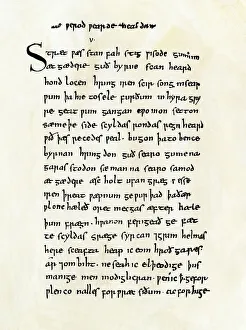 ƿerod ƿearde healdan
v
Stræt ƿæs stan fah stig ƿisode gumum
æt gædere guð byrne scan heard
hond locen hring iren scir song in searƿ
um þa hie to sele furðum in hyra gry
re geat ƿum gangan cƿomon setton
sæmeþe side scyldas rondas regn heard
e ƿið þæs recedes ƿeal. bugon þa to bence
byrnan hring don guð searo gumena
garas stodon sæmanna searo samod
æt gædere æsc holt ufan græg ƿæs se
iren þreat ƿæpnum geƿurþad þa ðær
ƿlonc hæleð oret mecgas æfter hæle
þum frægn. hƿanon ferigeað ge fæt
te scyldas græge syrcan ⁊ grim helmas
here sceafta heap ic eom hroð gares
ar ⁊ om biht. ne seah ic elþeodige þus
manige men modiglicran. ƿen ic ꝥ ge for
ƿlenco nalles for ƿræc siðum ac for hige